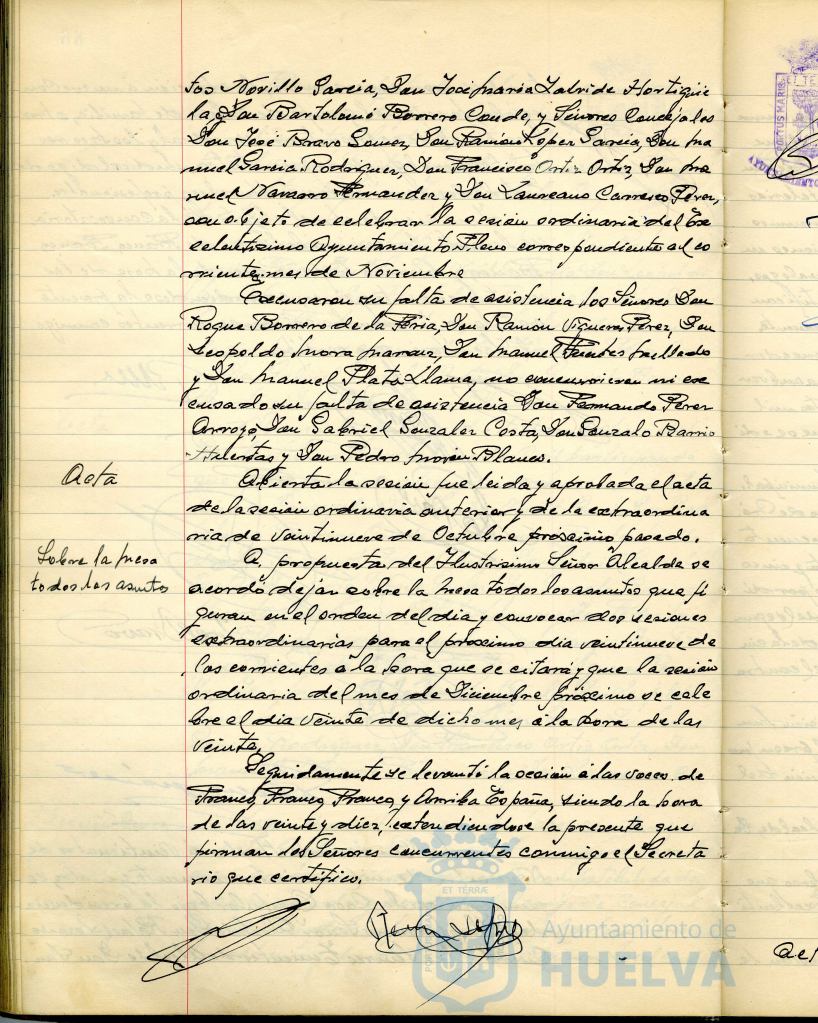 tos Novillo García, Don José María Zalvide Hortigüe
la y Don Bartolomé Borrero Conde, y Señores Concejales
Don José Bravo Gomez, Don Ramón Lopez García, Don Ma
nuel García Rodriguez, Don Francisco Ortiz Ortiz, Don Ma
nuel Navarro Fernandez y Don Laureano Carrasco Pérez,
con objeto de celebrar la sesión ordinaria del Ex
celentísimo Ayuntamiento Pleno correspondiente al co
rriente mes de Noviembre
Excusaron su falta de asistencia los Señores Don
Roque Borrero de la Feria, Don Ramón Viguera Pérez, Don
Leopoldo Morra Don Manuel Fuentes
y Don Manuel Plata Llama, no concurrieron ni ex
cusado su falta de asistencia Don Fernando Pérez
Arroyo, Don Gabriel Gonzalez Costa, Don Gonzalo Barrio
Huertas y Don Pedro Morón Blanco.
Acta
Abierta la sesión fue leida y aprobada el acta
de la sesión ordinaria anterior y de la extraordina
ria de veintinueve de Octubre próximo pasado.
Sobre la mesa
todos los asuntos
A propuesta del Ilustrisimo Señor Alcalde se
acordó dejar sobre la mesa todos los asuntos que fi
guran en el orden del día y convocar dos sesiones
extraordinarias para el próximo dia veintinueve de
los corrientes á la hora que se citará y que la sesión
ordinaria del mes de Diciembre próximo se cele
bre el dia veinte de dicho mes á la hora de las
veinte.
Seguidamente se levantó la sesión á las voces de
Franco, Franco, Franco, y Arriba España, siendo la hora
de las veinte y diez, extendiendose la presente que
firman los Señores concurrentes conmigo el Secreta
rio que certifico.
ET TERRÆ
Ayuntamiento de
HUELVA